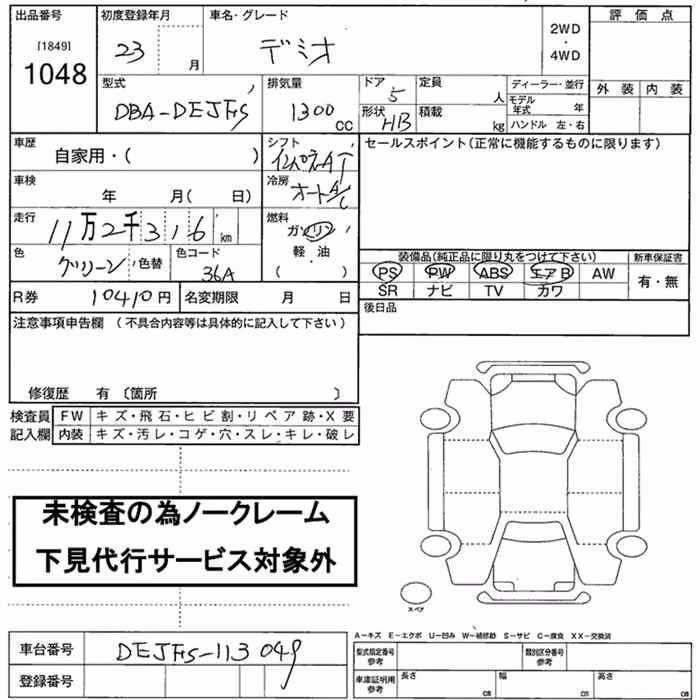 出品番号 初度登録年月 車名・グレード 評価点
[1849]
1048
23 月 デミオ 2WD・4WD
外装 内装
型式 排気量 ドア 定員 ディーラー・並行
DBA-DEJFS 1300 CC 5 人 モデル年式 年
形状 積載
HB kg ハンドル 左・右
車歴 シフト セールスポイント(正常に機能するものに限ります)
自家用・( )
車検 冷房
年 月( 日) オートA/C
走行 燃料
11万2千316 km ガソリン
色 色替 色コード 軽・油
グリーン 36A ( )
装備品(純正品に限り丸をつけて下さい) 新車保証書
PS PW ABS エアB AW 有・無
SR ナビ TV カワ
R券 10410円 名変期限 月 日
後日品
注意事項申告欄 (不具合内容等は具体的に記入して下さい)
修復歴 有 〔箇所 〕
検査員 FW キズ・飛石・ヒビ割・リペア跡・X要
記入欄 内装 キズ・汚レ・コゲ・穴・スレ・キレ・破レ
未検査の為ノークレーム
下見代行サービス対象外
スペア
A−キズ E−エクボ U−凹み W−補修跡 S−サビ C−腐食 XX−交換済
車台番号 DEJFS-113049
型式指定番号 参考 類別区分番号 参考
登録番号
車庫証明用 参考 長さ cm 幅 cm 高さ cm